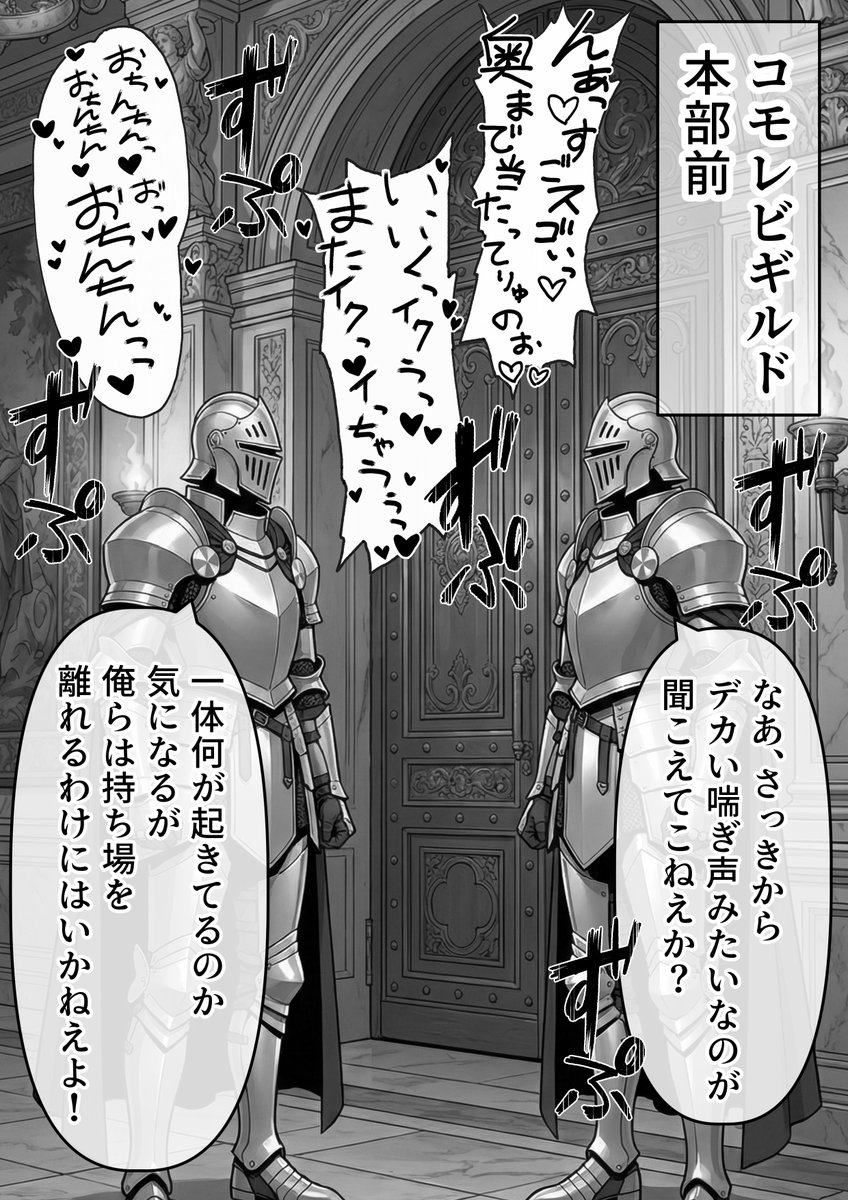 コモレビギルド
本部前
んあっ♡すごスゴいっ♡
奥まで当たってりゅのぉ♡♡
いいくっイクうっ♥
またイクっイっちゃううっ♥
おちんちんっ♥
おちんちん♥
おっ♥
おちんちんっっ♥
ずぷ
ずぷ
ずぷ
ずぷ
ずぷ
なあ、さっきから
デカい喘ぎ声みたいなのが
聞こえてこねえか？
一体何が起きてるのか
気になるが
俺らは持ち場を
離れるわけにはいかねえよ！